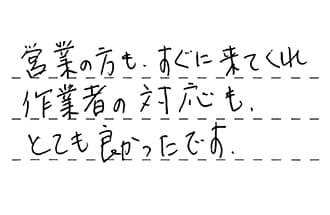 営業の方も、すぐに来てくれ
作業者の対応も、
とても良かったです。